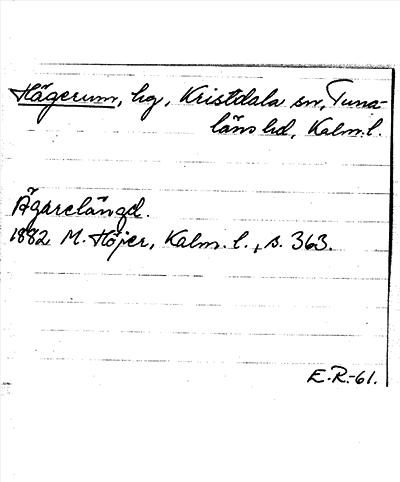 Hägerum, hg, Kristdala sn, Tuna-
läns hd, Kalm.l.
Ägarelängd.
1882 M. Höjer, Kalm. l., s. 363.
E.R.-61.